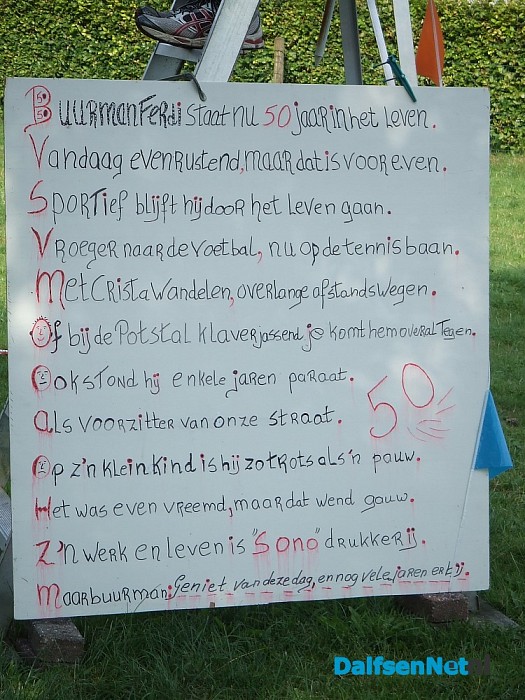 Buurman Ferdi staat nu 50 jaar in het leven.
Vandaag even rustend, maar dat is voor even.
Sportief blijft hij door het leven gaan.
Vroeger naar de voetbal, nu op de tennisbaan.
Met Crista wandelen, over lange afstandswegen.
Of bij de Potstal klaverjassend je komt hem overal tegen.
Ook stond hij enkele jaren paraat.
50
als voorzitter van onze straat.
Op z'n kleinkind is hij zo trots als 'n pauw.
Het was even vreemd, maar dat wend gauw.
Z'n werk en leven is "Sono" drukkerij.
Maar buurman: Geniet van deze dag, en nog vele jaren erbij.
DalfsenNet.nl